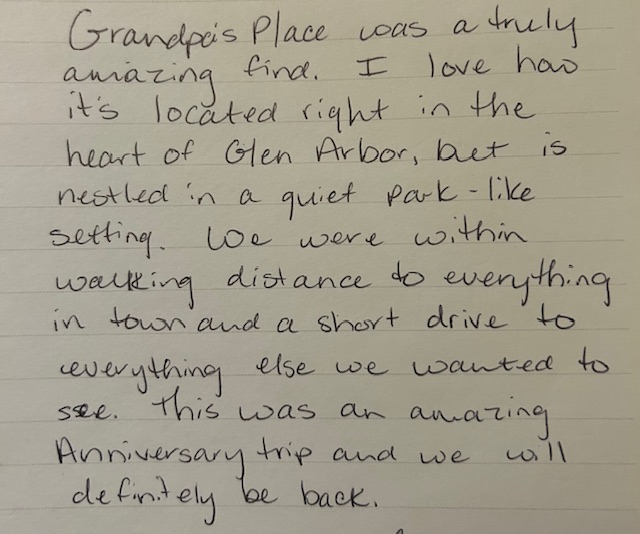 Grandpa's Place was a truly
amazing find. I love how
it's located right in the
heart of Glen Arbor, but is
nestled in a quiet park-like
setting. We were within
walking distance to everything
in town and a short drive to
everything else we wanted to
see. This was an amazing
Anniversary trip and we will
definitely be back.